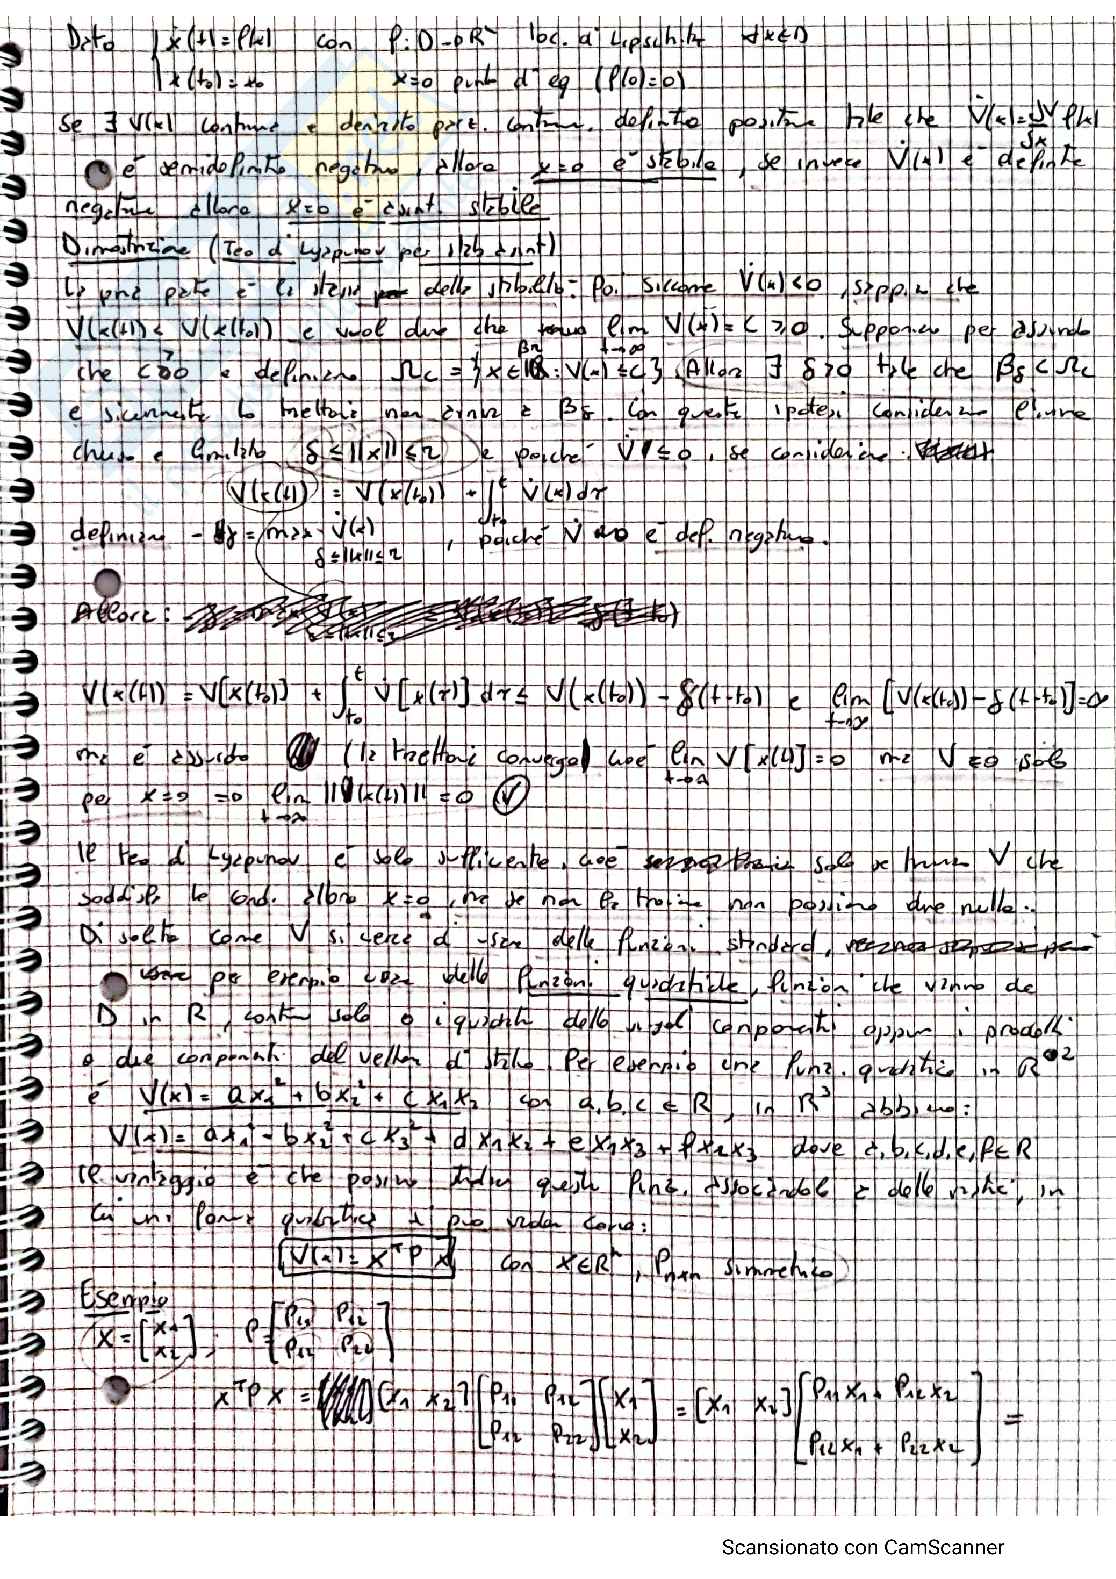 Dato { ẋ(t)=f(x) con f: D→R^n loc. di Lipschitz ∀x∈D
x(t₀)=x₀ x=0 punto di eq (f(0)=0)
Se ∃ V(x) continua e derivata parz. continua, definita positiva tale che V̇(x)=δV/δx f(x)
è semidefinita negativa, allora x=0 è stabile, se invece V̇(x) è definita
negativa allora x=0 è asint. stabile
Dimostrazione (Teo di Lyapunov per stab asint)
La prima parte è la stessa della stabilità. Poi siccome V̇(x)<0, sappia che
V(x(t))< V(x(t₀)) e vuol dire che lim t→∞ V(x)=C⩾0. Supponia per assurdo
che C>0 e definiamo Ω_C = {x∈B_r: V(x)≤C} Allora ∃ δ>0 tale che B_δ⊂Ω_C
e sicuramente la traiettoria non entra a B_δ. Con queste ipotesi consideriamo l'insieme
chiuso e limitato δ≤||x||≤r e poiché V̇≤0, se consideriamo
V(x(t)) = V(x(t₀)) + ∫_{t₀}^{t} V̇(x)dτ
definiamo -γ = max V̇(x) δ≤||x||≤r , poiché V̇ è def. negativa.
Allora:
V(x(t)) = V[x(t₀)] + ∫_{t₀}^{t} V̇[x(τ)] dτ ≤ V(x(t₀)) - γ(t-t₀) e lim t→∞ [V(x(t₀))-γ(t-t₀)]=∞
ma è assurdo (la traiettoria converge) cioè lim t→∞ V[x(t)]=0 ma V=0 solo
per x=0 ⇒ lim t→∞ ||x(t)||=0 ✓
Il teo di Lyapunov è solo sufficiente, cioè solo se trovo V che
soddisfa le cond. allora x=0, ma se non la trovia non possiamo dire nulla.
Di solito come V si cerca di usare delle funzioni standard,
per esempio usa delle funzioni quadratiche, funzioni che vanno da
D in R, contien solo o i quadrati delle singole componenti oppure i prodotti
a due componenti del vettore di stato. Per esempio una funz. quadratica in R²
è V(x)= ax₁² + bx₂² + cx₁x₂ con a,b,c∈R, in R³ abbiamo:
V(x)= ax₁²+bx₂²+cx₃²+dx₁x₂+ex₁x₃+fx₂x₃ dove a,b,c,d,e,f∈R
Il vantaggio è che possiamo studiar queste funz. associandole a delle matrici, in
cui una forma quadratica si può veder come:
V(x)= x^T P x con x∈R^n, P_{n×n} simmetrica
Esempio
x=[x₁ x₂], P=[p₁₁ p₁₂; p₁₂ p₂₂]
x^T P x = [x₁ x₂][p₁₁ p₁₂; p₁₂ p₂₂][x₁; x₂] = [x₁ x₂][p₁₁x₁+p₁₂x₂; p₁₂x₁+p₂₂x₂] =
Scansionato con CamScanner